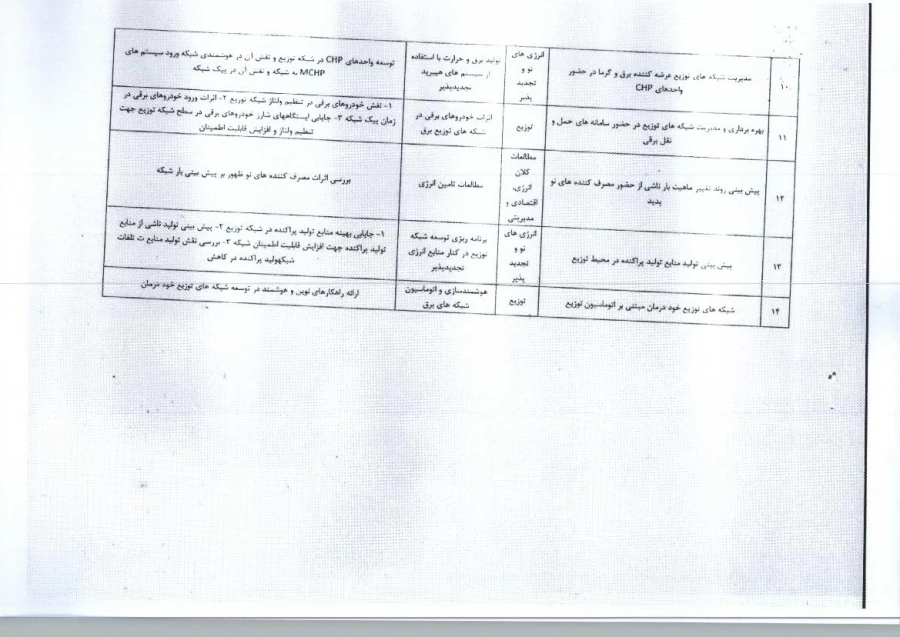 ۱۰
مدیریت شبکه های توزیع عرضه کننده برق و گرما در حضور
واحدهای CHP
انرژی های
نو و
تجدید
پذیر
تولید برق و حرارت با استفاده
از سیستم های هیبرید
تجدیدپذیر
توسعه واحدهای CHP در شبکه توزیع و نقش آن در هوشمندی شبکه ورود سیستم های
MCHP به شبکه و نقش آن در پیک شبکه
۱۱
بهره برداری و مدیریت شبکه های توزیع در حضور سامانه های حمل و
نقل برقی
توزیع
اثرات خودروهای برقی در
شبکه های توزیع برق
۱- نقش خودروهای برقی در تنظیم ولتاژ شبکه توزیع ۲- اثرات ورود خودروهای برقی در
زمان پیک شبکه ۳- جایابی ایستگاههای شارژ خودروهای برقی در سطح شبکه توزیع جهت
تنظیم ولتاژ و افزایش قابلیت اطمینان
۱۲
پیش بینی روند تغییر ماهیت بار ناشی از حضور مصرف کننده های نو
پدید
مطالعات
کلان
انرژی،
اقتصادی و
مدیریتی
مطالعات تامین انرژی
بررسی اثرات مصرف کننده های نو ظهور بر پیش بینی بار شبکه
۱۳
پیش بینی تولید منابع تولید پراکنده در محیط توزیع
انرژی های
نو و
تجدید
پذیر
برنامه ریزی توسعه شبکه
توزیع در کنار منابع انرژی
تجدیدپذیر
۱- جایابی بهینه منابع تولید پراکنده در شبکه توزیع ۲- پیش بینی تولید ناشی از منابع
تولید پراکنده جهت افزایش قابلیت اطمینان شبکه ۳- بررسی نقش تولید منابع ت تلفات
شبکهولید پراکنده در کاهش
۱۴
شبکه های توزیع خود درمان مبتنی بر اتوماسیون توزیع
توزیع
هوشمندسازی و اتوماسیون
شبکه های برق
ارائه راهکارهای نوین و هوشمند در توسعه شبکه های توزیع خود درمان